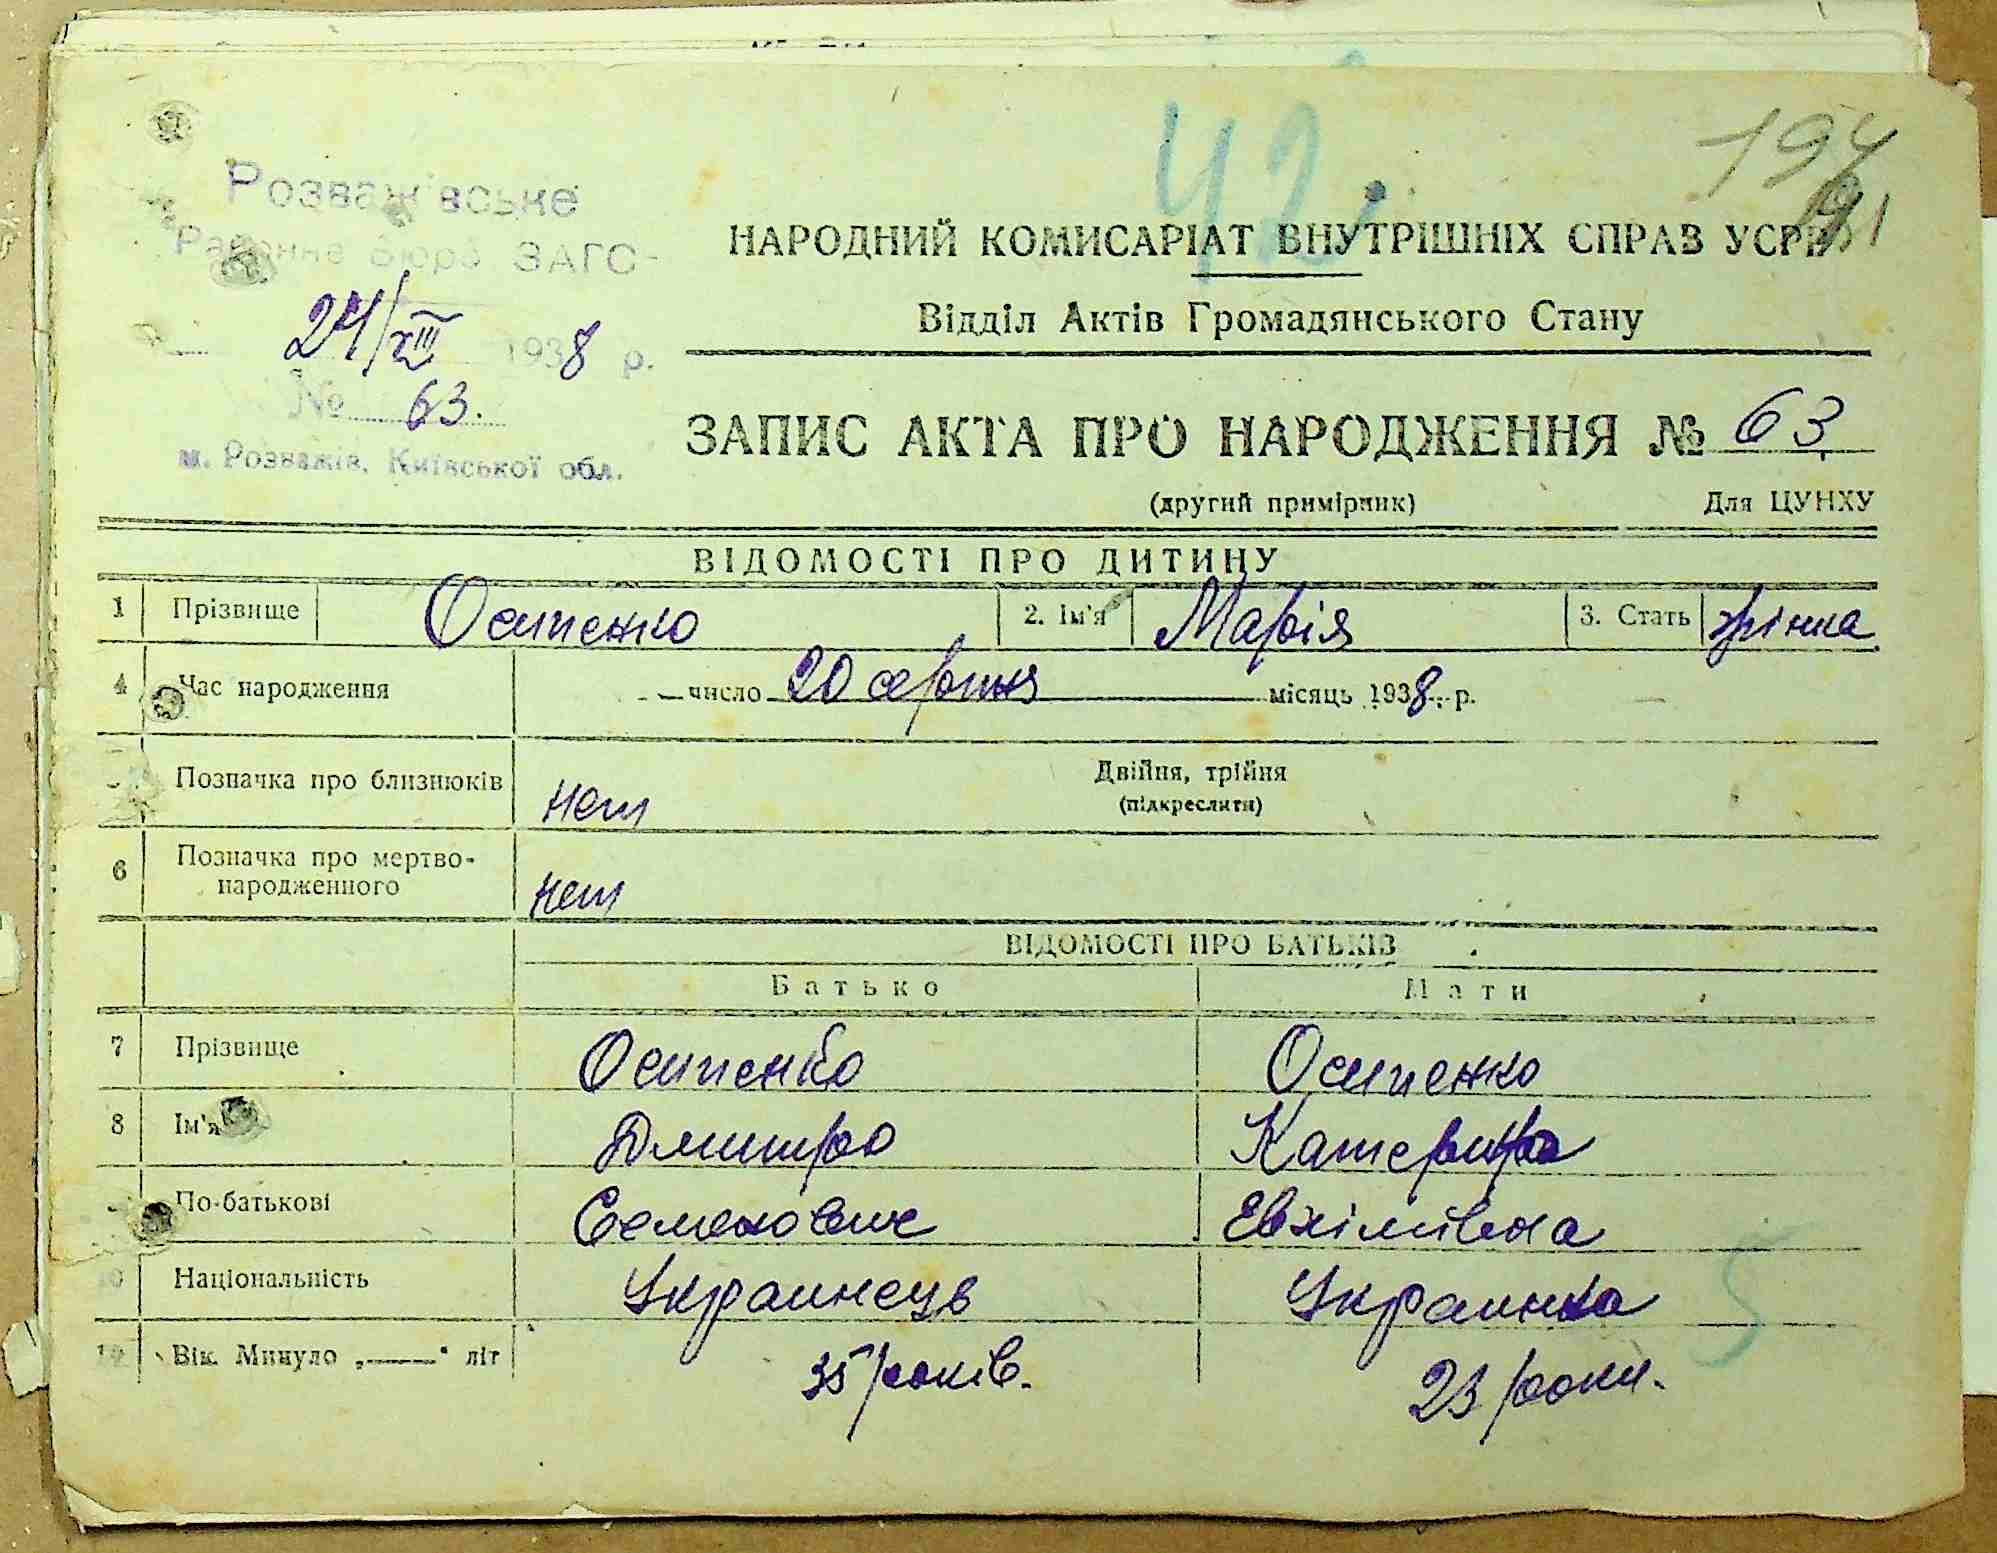 42.
194
191
Розважівське
Районне Бюро ЗАГС
24/VIII 1938 р.
№ 63.
м. Розважів, Київської обл.
НАРОДНИЙ КОМИСАРІАТ ВНУТРІШНІХ СПРАВ УСРР
Відділ Актів Громадянського Стану
ЗАПИС АКТА ПРО НАРОДЖЕННЯ № 63
(другий примірник) Для ЦУНХУ
ВІДОМОСТІ ПРО ДИТИНУ
1 Прізвище Осипенко 2. Ім'я Марія 3. Стать жінка
4 Час народження число 20 серпня місяць 1938 р.
Позначка про близнюків нет Двійня, трійня
(підкреслити)
6 Позначка про мертво-
народженного нет
ВІДОМОСТІ ПРО БАТЬКІВ
Батько Мати
7 Прізвище Осипенко Осипенко
8 Ім'я Дмитро Катерина
По-батькові Семенович Евхімівна
10 Національність Украинець Украинка
Вік. Минуло „——“ літ 35 років. 23 роки.
5